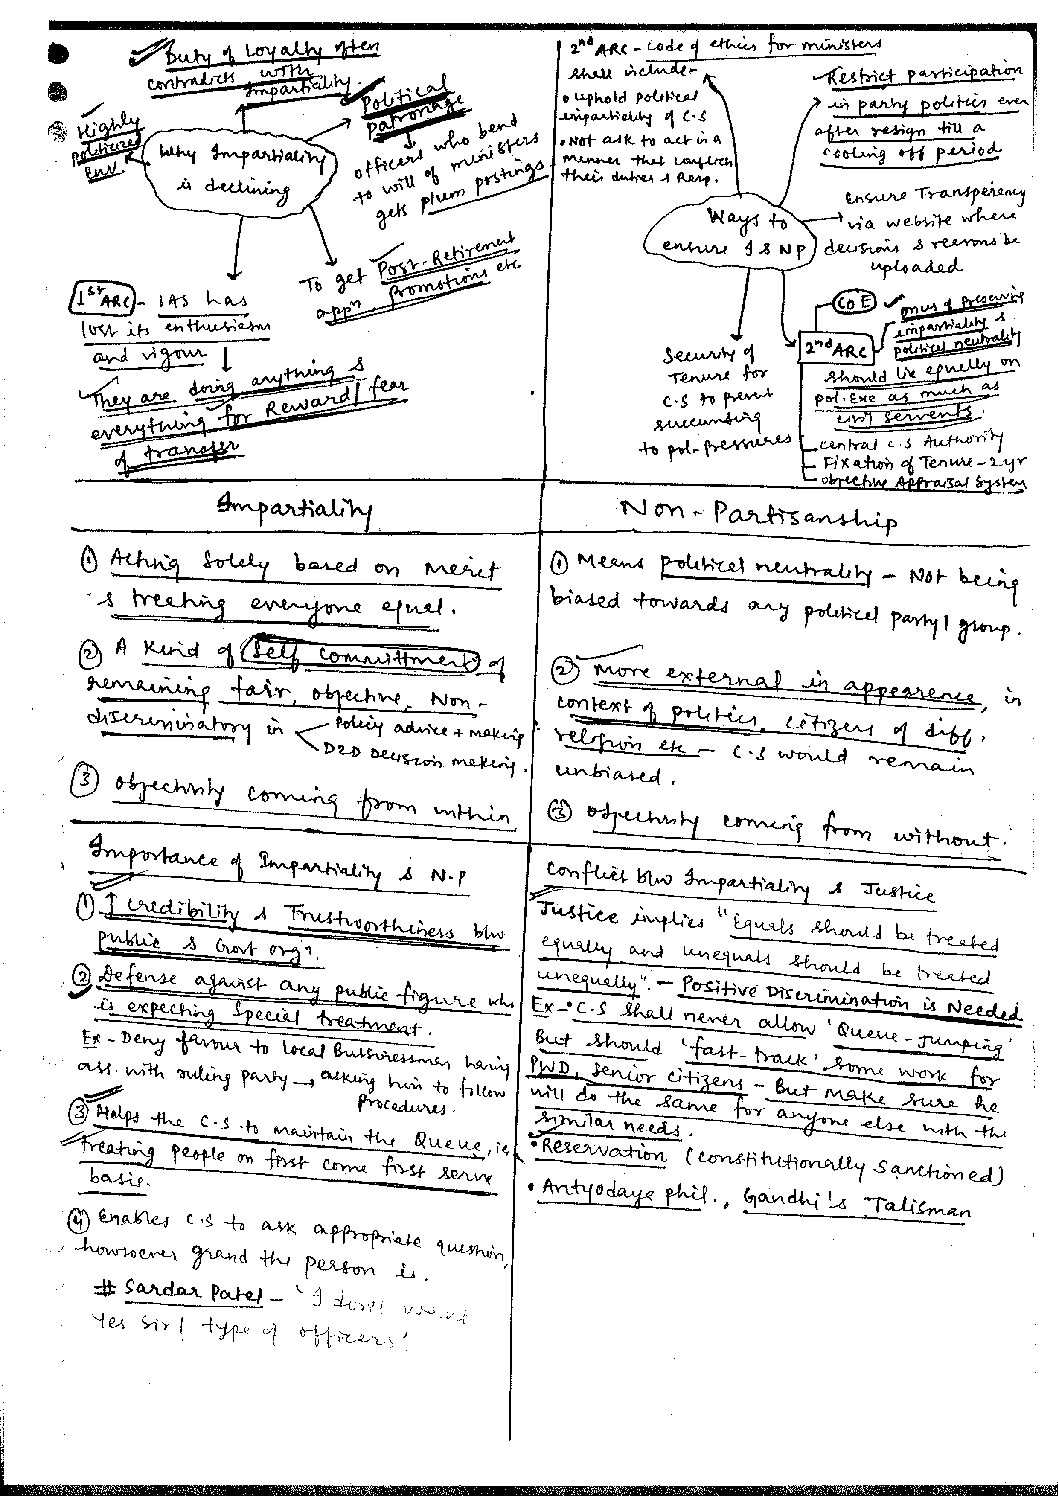 Duty of Loyalty often
contradicts with
Impartiality.
Highly
Politicized
Env.
Political
Patronage
officers who bend
to will of ministers
gets plum postings.
Why Impartiality
is declining
To get Post-Retirement
appn, promotions etc.
1st ARC - IAS has
lost its enthusiasm
and vigour
They are doing anything &
everything for Reward/fear
of transfer
2nd ARC - Code of ethics for ministers
shall include-
• Uphold political
impartiality of C.S
• Not ask to act in a
manner that conflicts
their duties & Resp.
Restrict participation
in party politics even
after resign till a
cooling off period
Ways to
ensure I & NP
ensure Transperency
via website where
decisions & reasons be
uploaded
Security of
Tenure for
C.S to prevent
succumbing
to pol. pressures
COE
2nd ARC
onus of preserving
impartiality &
political neutrality
should lie equally on
pol. Exe as much as
civil servents.
Central C.S Authority
Fixation of Tenure - 2yr
Objective Appraisal System
Impartiality
① Acting solely based on merit
& treating everyone equal.
② A kind of Self Committment of
remaining fair, objective, Non-
discriminatory in
Policy advice + making
D2D Decision making.
③ objectivity coming from within
Non-Partisanship
① Means political neutrality - Not being
biased towards any political party/group.
② More external in appearence, in
context of politics, citizens of diff.
religion etc - C.S would remain
unbiased.
③ objectivity coming from without.
Importance of Impartiality & N.P
① ↑ credibility & Trustworthiness b/w
public & Govt orgn.
② Defense against any public figure who
is expecting special treatment.
Ex - Deny favour to local Businessman having
ass. with ruling party → asking him to follow
procedures.
③ Helps the C.S to maintain the Queue, i.e,
treating people on first come first serve
basis.
④ Enables C.S to ask appropriate question,
howsoever grand the person is.
# Sardar Patel - 'I don't want
Yes Sir! type of officers'
Conflict b/w Impartiality & Justice
Justice implies "Equals should be treated
equally and unequals should be treated
unequally". - Positive Discrimination is Needed
Ex - • C.S shall never allow 'Queue-Jumping'
But should 'fast-track' some work for
PWD, senior citizens - But make sure he
will do the same for anyone else with the
similar needs.
• Reservation (constitutionally sanctioned)
• Antyodaya phil., Gandhi's Talisman